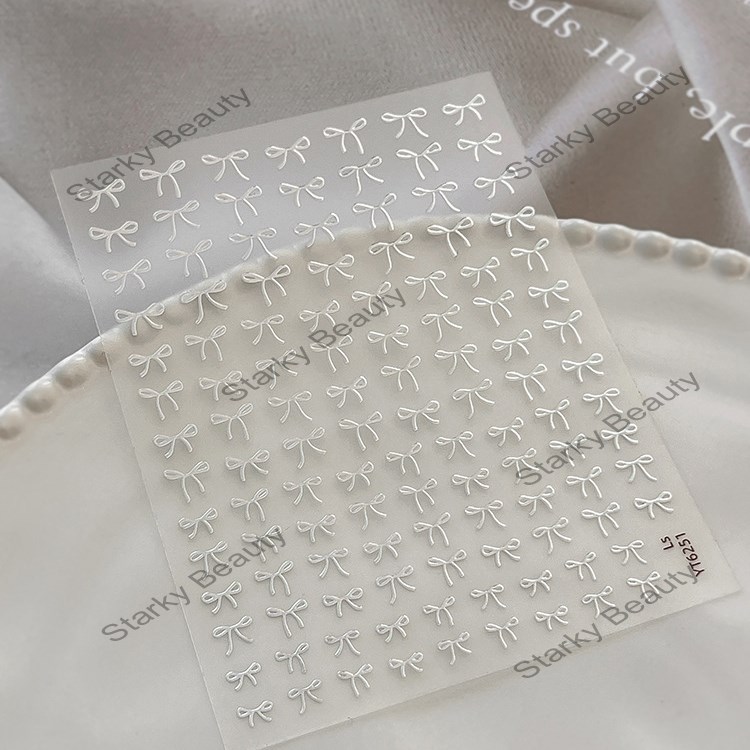 ple, but spe
Starky Beauty
Starky Beauty
Starky Beauty
Starky Beauty
Starky Beauty
Starky Beauty
YT6251
LS